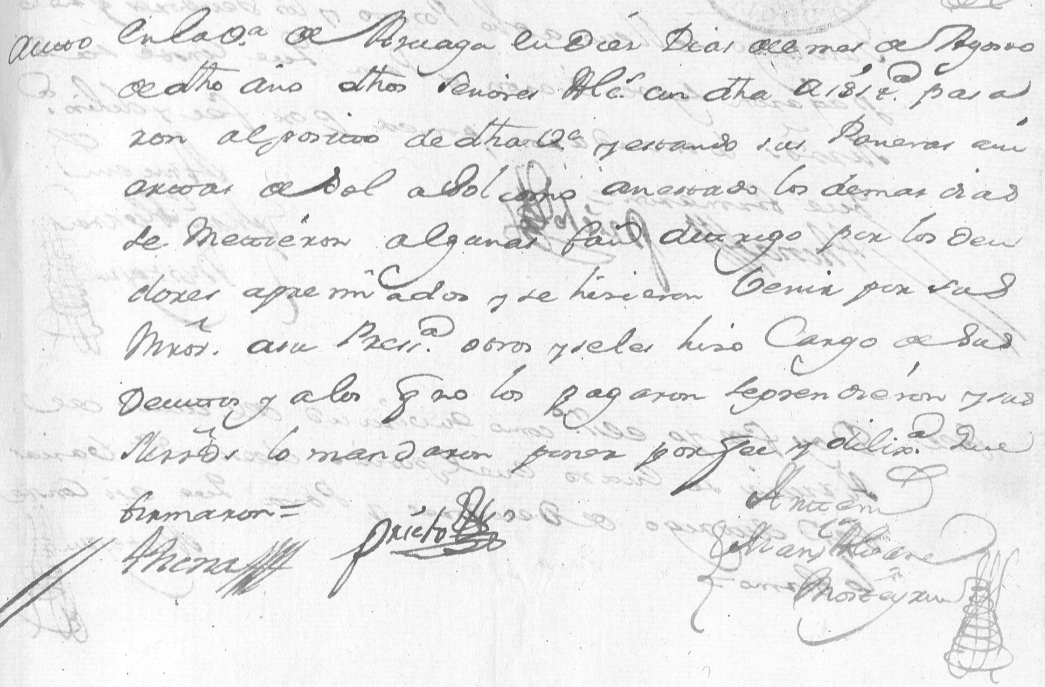 Auto En la v.a de Azuaga en Diez Dias de el mes de Agosto
de dho año dhos Señores Alc. con dha asist.a pasa
ron al posito de dha v.a y estando sus Paneras avi
ertas de Sol a Sol como an estado los demas dias
se Metieron algunas fan.s de trigo por los deu
dores apremiados y se hisieron Venir por sus
Mrds. a su Pres.a otros y se les hiso Cargo de sus
Devitos y a los q no los pagaron se prendieron y sus
Mrds lo mandaron poner por fee y dilix.a que
firmaron =
Prieto
Ante mi